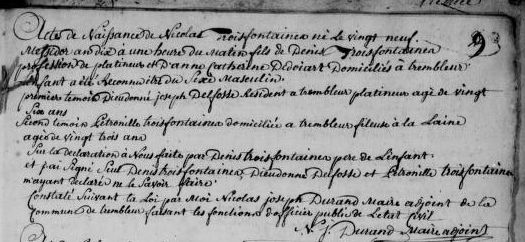 Acte de Naissance de Nicolas Troisfontainea né le vingt neuf
Messidor an dix à une heure du Matin fils de Denis Troisfontainea
profession de platineur et D'anne Catherine Dedoiart Domiciliés à trembleur
Lenfant a été Reconnu être du Sixe Masculin.
premier temoin Dieudonné joseph Delfosse Resident a trembleur platineur agé de vingt
Six ans
Second temoin Petronille troisfontainea domiciliée a trembleur fileuse à la Laine
agée de vingt trois ans
Sur la déclaration à Nous faite par Denis troisfontainea pere de Linfant.
et j'ai Signé Seul Denis troisfontainea, Dieudonné Delfosse et Petronille troisfontainea
m'ayant declaré ne le Savoir faire
Constaté Suivant la Loi par Moi Nicolas joseph Durand Maire adjoint de la
Commune de trembleur faisant les fonctions d'officier public de Letat civil
N. J. Durand Maire adjoint